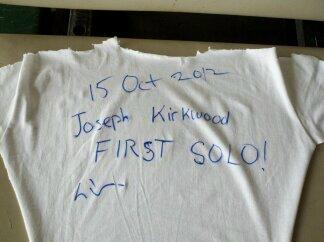 15 Oct 2012
Joseph Kirkwood
FIRST SOLO!